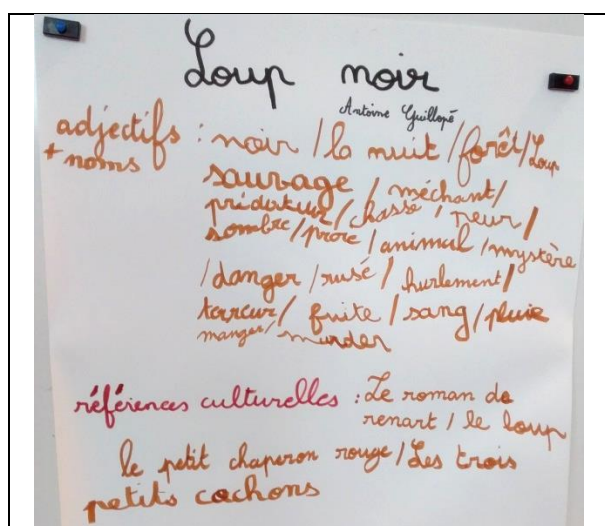 Loup noir
Antoine Guillopé
adjectifs : noir / la nuit / forêt / Loup
+ noms sauvage / méchant /
prédateur / chasse / peur /
sombre / proie / animal / mystère
/ danger / rusé / hurlement /
terreur / fuite / sang / pluie
manger / murder
références culturelles : Le roman de
renart / le loup
le petit chaperon rouge / Les trois
petits cochons